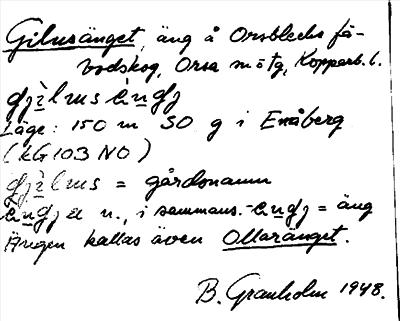 Gilusänget, äng å Orsblecks fä-
bodskog, Orsa m å tg, Kopparb. l.
Läge: 150 m SO g i Enåberg
(kG 103 NO)
= gårdsnamn
n., i sammans. = äng
Ängen kallas även Ollaränget.
B. Granholm 1948.